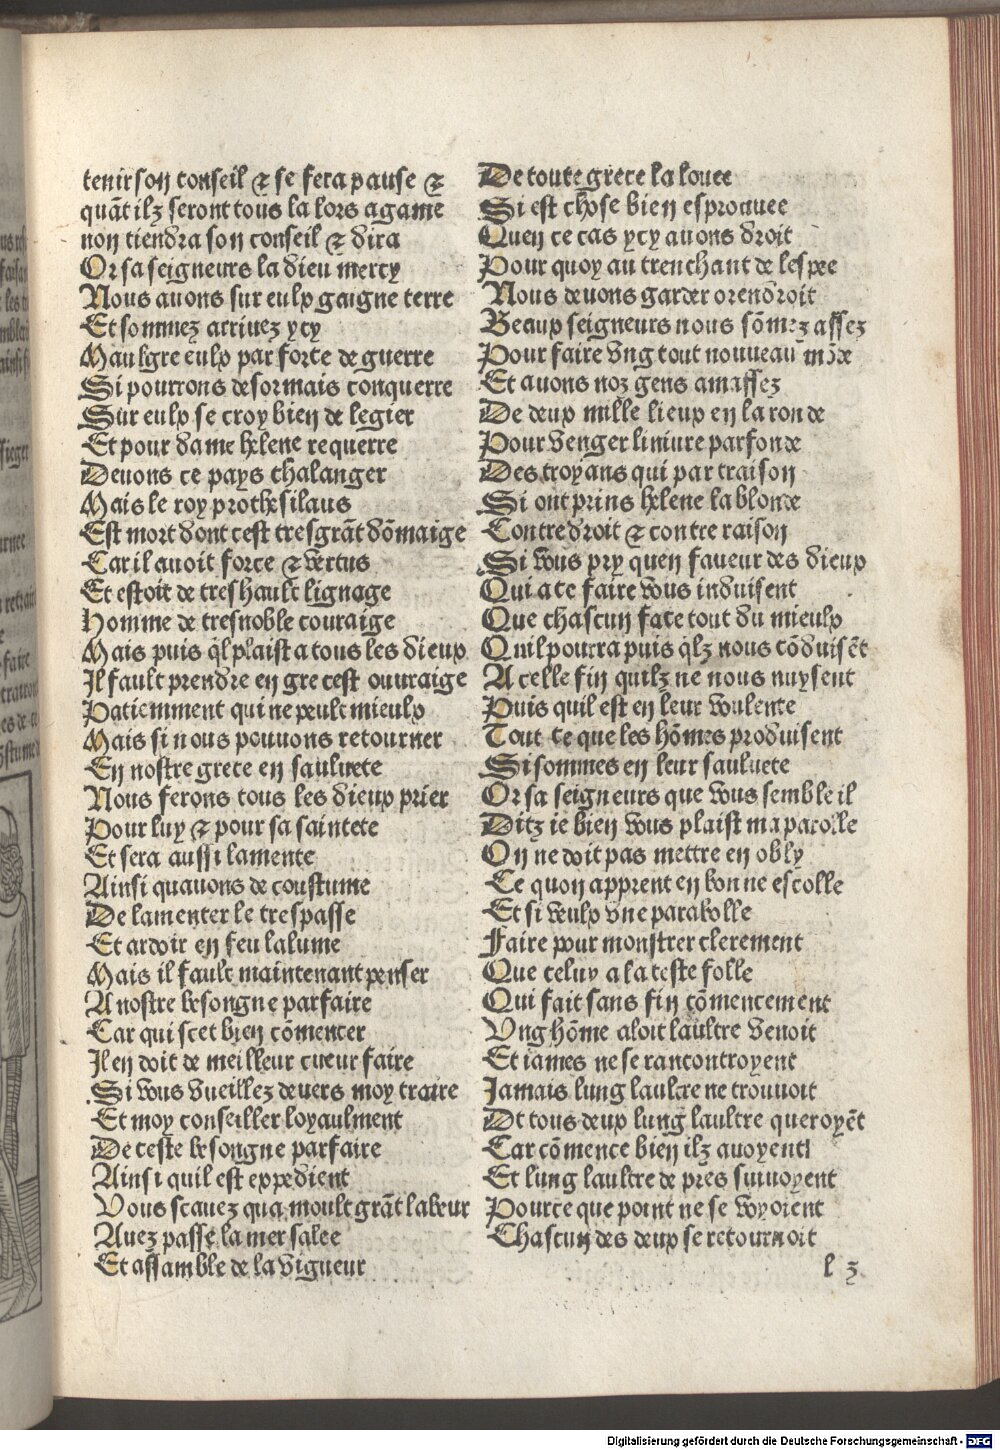 tenir son conseil ⁊ se fera pause ⁊
quāt ilz seront tous la lors agame
non tiendra son conseil ⁊ dira
Or sa seigneurs la dieu mercy
Nous auons sur eulx gaigne terre
Et sommez arriuez ycy
Maulgre eulx par forte de guerre
Si pourrons desormais conquerre
Sur eulx se croy bien de legier
Et pour dame helene requerre
Deuons ce pays chalanger
Mais le roy prothesilaus
Est mort dont cest tresgrāt dōmaige
Car il auoit force ⁊ vertus
Et estoit de tres hault lignage
Homme de tresnoble couraige
Mais puis ql plaist a tous les dieux
Il fault prendre en gre cest ouuraige
Patiemment qui ne peult mieulx
Mais si nous pouuons retourner
En nostre grece en sauluete
Nous ferons tous les dieux prier
Pour luy ⁊ pour sa saintete
Et sera aussi lamente
Ainsi quauons de coustume
De lamenter le trespasse
Et ardoir en feu lalume
Mais il fault maintenant penser
A nostre besongne parfaire
Car qui scet bien cōmencer
Il en doit de meilleur cueur faire
Si vous vueillez deuers moy traire
Et moy conseiller loyaulment
De ceste besongne parfaire
Ainsi quil est expedient
Vous scauez qua moult grāt labeur
Auez passe la mer salee
Et assamble de la vigueur
De toute grece la louee
Si est chose bien esprouuee
Quen ce cas ycy auons droit
Pour quoy au trenchant de lespee
Nous deuons garder orendroit
Beaux seigneurs nous sōmez assez
Pour faire vng tout nouueau mōde
Et auons noz gens amassez
De deux mille lieux en la ronde
Pour venger liniure parfonde
Des troyans qui par traison
Si ont prins helene la blonde
Contre droit ⁊ contre raison
Si vous pry quen faueur des dieux
Qui a ce faire vous induisent
Que chascun face tout du mieulx
Quil pourra puis qlz nous cōduisēt
A celle fin quilz ne nous nuysent
Puis quil est en leur voulente
Tout ce que les hōmes produisent
Si sommes en leur sauluete
Or sa seigneurs que vous semble il
Ditz ie bien vous plaist ma parolle
On ne doit pas mettre en obly
Ce quon apprent en bonne escolle
Et si veulx vne parabolle
Faire pour monstrer clerement
Que celuy a la teste folle
Qui fait sans fin cōmencement
Vng hōme aloit laultre venoit
Et iames ne se rancontroyent
Jamais lung laultre ne trouuoit
Dt tous deux lung laultre queroyēt
Car cōmence bien ilz auoyent
Et lung laultre de pres suiuoyent
Pource que point ne se voyoient
Chascun des deux se retournoit
l z
Digitalisierung gefördert durch die Deutsche Forschungsgemeinschaft - DFG